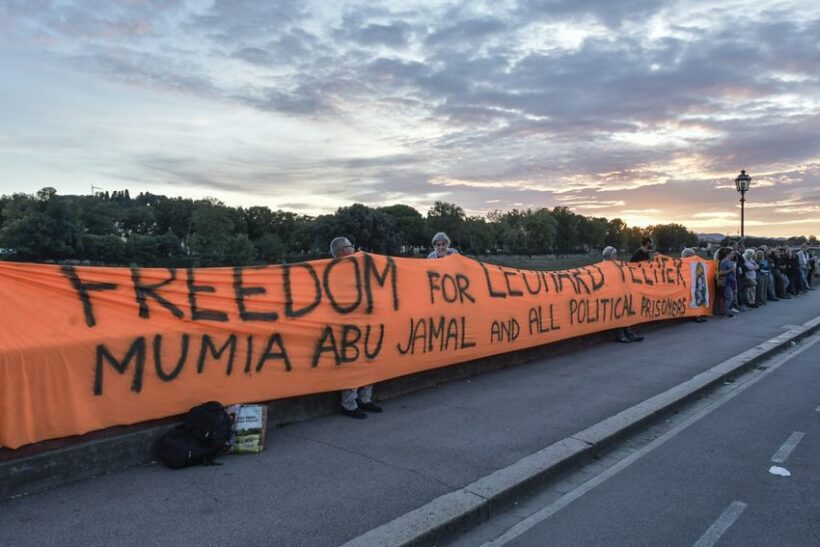 FREEDOM FOR LEONARD PELTIER
MUMIA ABU JAMAL AND ALL POLITICAL PRISONERS